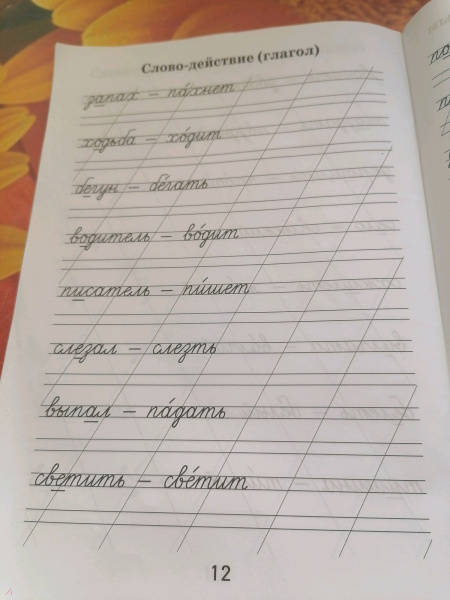 Слово-действие (глагол)
запах – па́хнет
ходьба – хо́дит
бегун – бе́гать
водитель – во́дит
писатель – пи́шет
слезал – слезть
выпал – па́дать
светить – све́тит
12